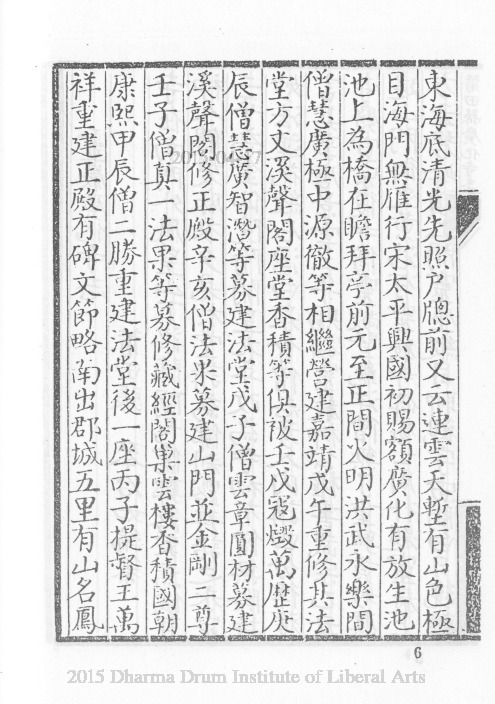 東海底清光先照户牕前又云連雲天塹有山色極
目海門無雁行宋太平興國初賜額廣化有放生池
池上為橋在瞻拜亭前元至正間火明洪武永樂間
僧慧廣極中源徹等相繼營建嘉靖戊午重修其法
堂方丈溪聲閣座堂香積等俱被壬戌寇燬萬歷庚
辰僧慧廣智潛等募建法堂戊子僧雲章圓材募建
溪聲閣修正殿辛亥僧法求募建山門並金剛二尊
壬子僧真一法果等募修藏經閣巢雲樓香積國朝
康熙甲辰僧二勝重建法堂後一座丙子提督王萬
祥重建正殿有碑文節略南出郡城五里有山名鳳
6
2015 Dharma Drum Institute of Liberal Arts